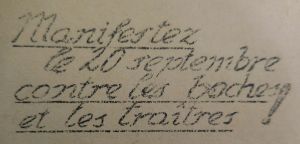 Manifestez
le 20 septembre
contre les boches
et les traîtres !